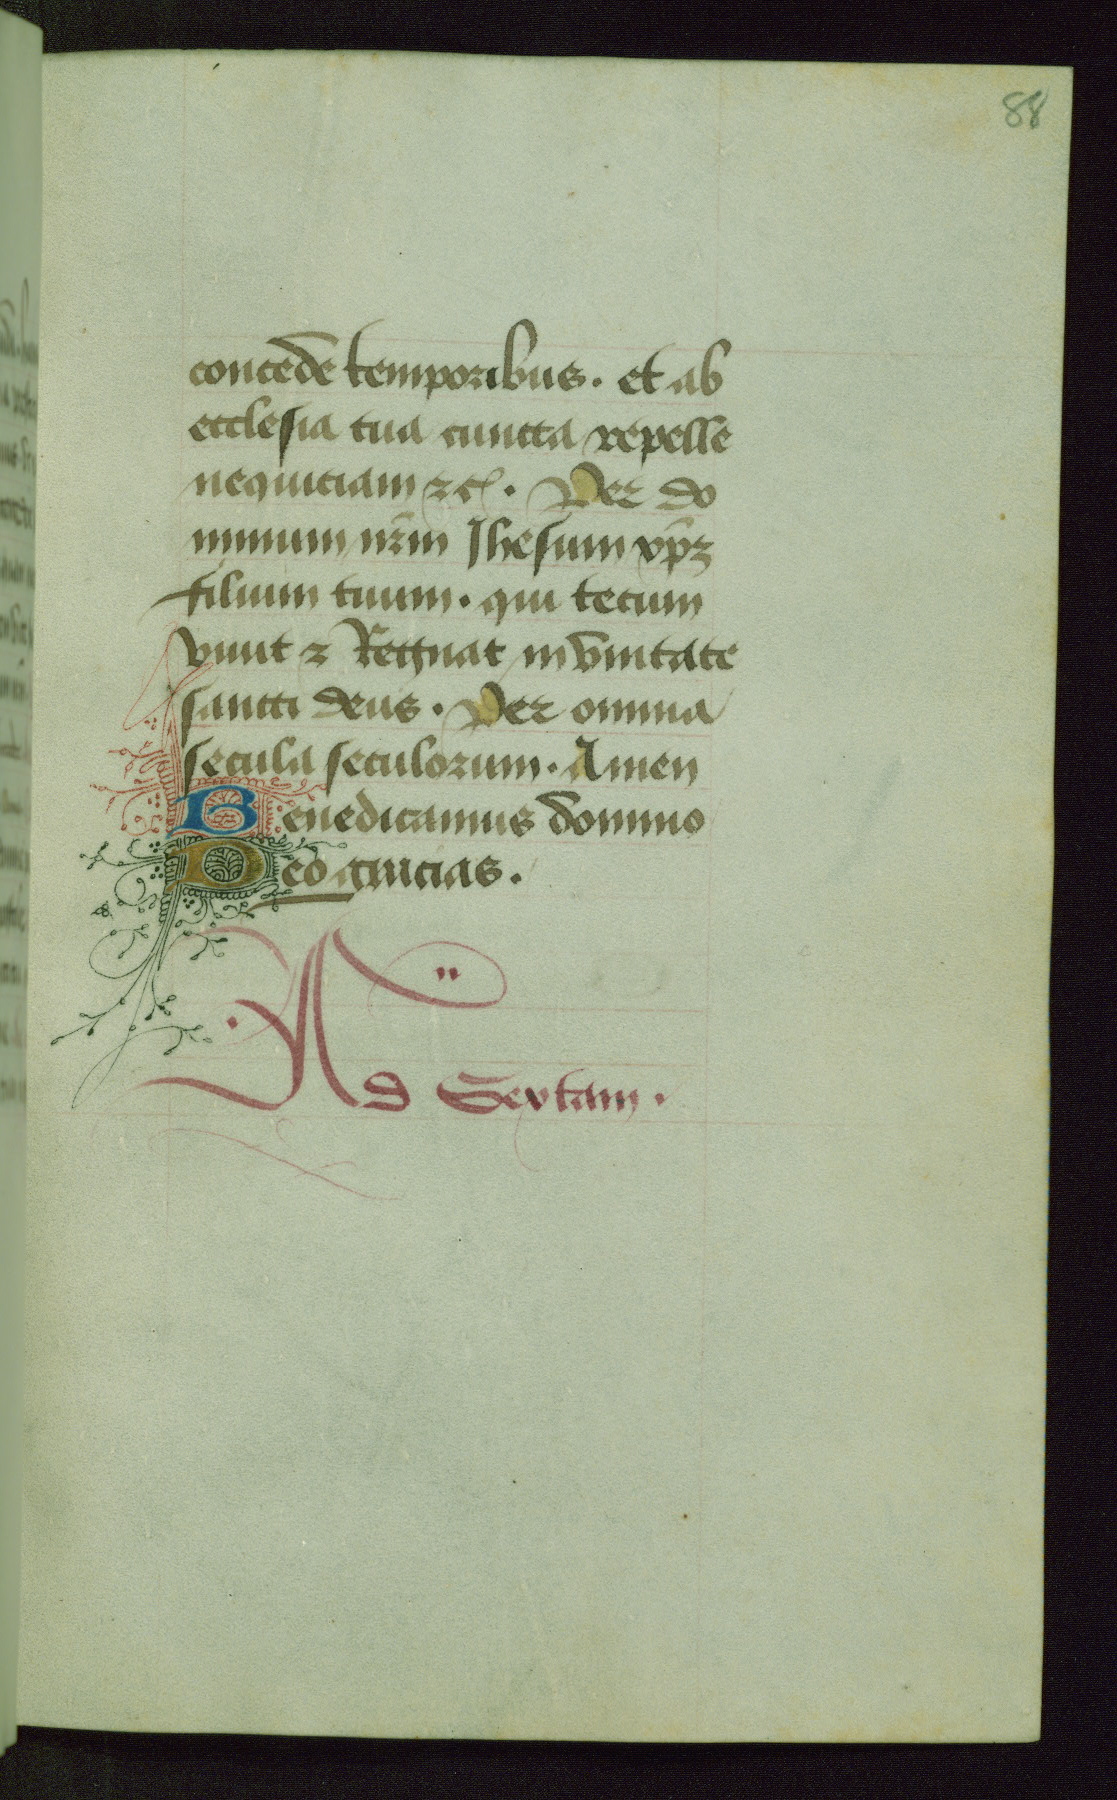 88
concede temporibus. et ab
ecclesia tua cuncta repelle
nequiciam ⁊c̄. Per do
minum nr̄m Jhesum xp̄ꝫ
filium tuum. qui tecum
viuit ⁊ Regnat in vnitate
sancti deus. Per omnia
secula seculorum. Amen
Benedicamus domino
Deo gracias.
Ad Sextam.